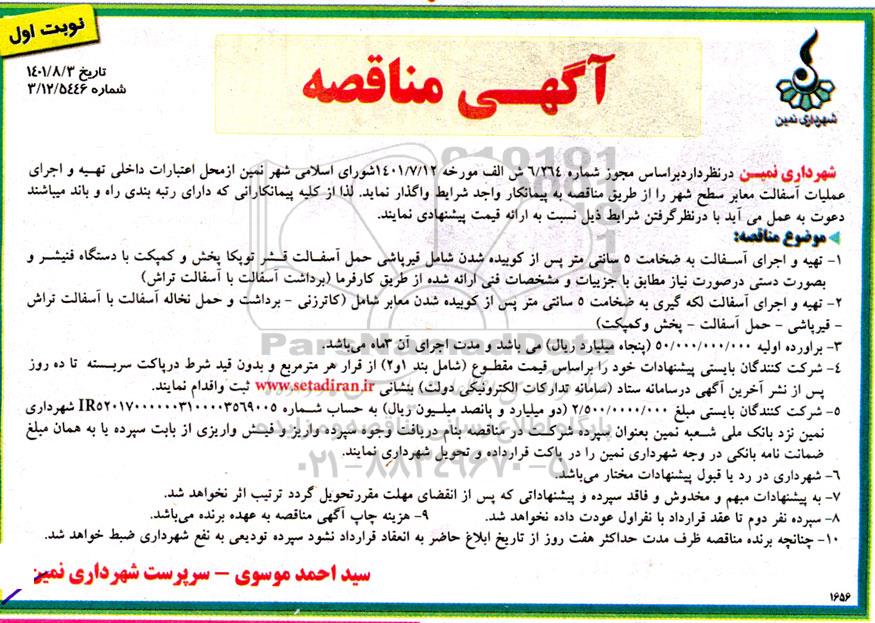 نوبت اول
تاریخ ۱۴۰۱/۸/۳
شماره ۳/۱۲/۵۴۴۶
آگهی مناقصه
شهرداری نمین
شهرداری نمین درنظرداردبراساس مجوز شماره ۶/۳۶۴ ش الف مورخه ۱۴۰۱/۷/۱۲شورای اسلامی شهر نمین ازمحل اعتبارات داخلی تهیه و اجرای
عملیات آسفالت معابر سطح شهر را از طریق مناقصه به پیمانکار واجد شرایط واگذار نماید. لذا از کلیه پیمانکارانی که دارای رتبه بندی راه و باند میباشند
دعوت به عمل می آید با درنظرگرفتن شرایط ذیل نسبت به ارائه قیمت پیشنهادی نمایند.
موضوع مناقصه:
۱- تهیه و اجرای آسفالت به ضخامت ۵ سانتی متر پس از کوبیده شدن شامل قیرپاشی حمل آسفالت قشر توپکا پخش و کمپکت با دستگاه فنیشر و
بصورت دستی درصورت نیاز مطابق با جزییات و مشخصات فنی ارائه شده از طریق کارفرما (برداشت آسفالت با آسفالت تراش)
۲- تهیه و اجرای آسفالت لکه گیری به ضخامت ۵ سانتی متر پس از کوبیده شدن معابر شامل (کاترزنی - برداشت و حمل نخاله آسفالت با آسفالت تراش
- قیرپاشی - حمل آسفالت - پخش وکمپکت)
۳- براورده اولیه ۵۰/۰۰۰/۰۰۰/۰۰۰ (پنجاه میلیارد ریال) می باشد و مدت اجرای آن ۳ماه می‌باشد.
۴- شرکت کنندگان بایستی پیشنهادات خود را براساس قیمت مقطوع (شامل بند ۱و۲) از قرار هر مترمربع و بدون قید شرط درپاکت سربسته تا ده روز
پس از نشر آخرین آگهی درسامانه ستاد (سامانه تدارکات الکترونیکی دولت) بنشانی www.setadiran.ir ثبت واقدام نمایند.
۵- شرکت کنندگان بایستی مبلغ ۲/۵۰۰/۰۰۰۰/۰۰۰ (دو میلیارد و پانصد میلیون ریال) به حساب شماره IR۵۲۰۱۷۰۰۰۰۰۰۳۱۰۰۰۰۳۵۶۹۰۰۵ شهرداری
نمین نزد بانک ملی شعبه نمین بعنوان سپرده شرکت در مناقصه بنام دریافت وجوه سپرده واریز و فیش واریزی از بابت سپرده یا به همان مبلغ
ضمانت نامه بانکی در وجه شهرداری نمین را در پاکت قرارداده و تحویل شهرداری نمایند.
۶- شهرداری در رد یا قبول پیشنهادات مختار می‌باشد.
۷- به پیشنهادات مبهم و مخدوش و فاقد سپرده و پیشنهاداتی که پس از انقضای مهلت مقررتحویل گردد ترتیب اثر نخواهد شد.
۸- سپرده نفر دوم تا عقد قرارداد با نفراول عودت داده نخواهد شد. ۹- هزینه چاپ آگهی مناقصه به عهده برنده می‌باشد.
۱۰- چنانچه برنده مناقصه ظرف مدت حداکثر هفت روز از تاریخ ابلاغ حاضر به انعقاد قرارداد نشود سپرده تودیعی به نفع شهرداری ضبط خواهد شد.
سید احمد موسوی – سرپرست شهرداری نمین
۱۶۵۶
ParsNamadData
پایگاه اطلاع رسانی مناقصه و مزایده
۰۲۱-۸۸۳۴۹۶۷۰-۵